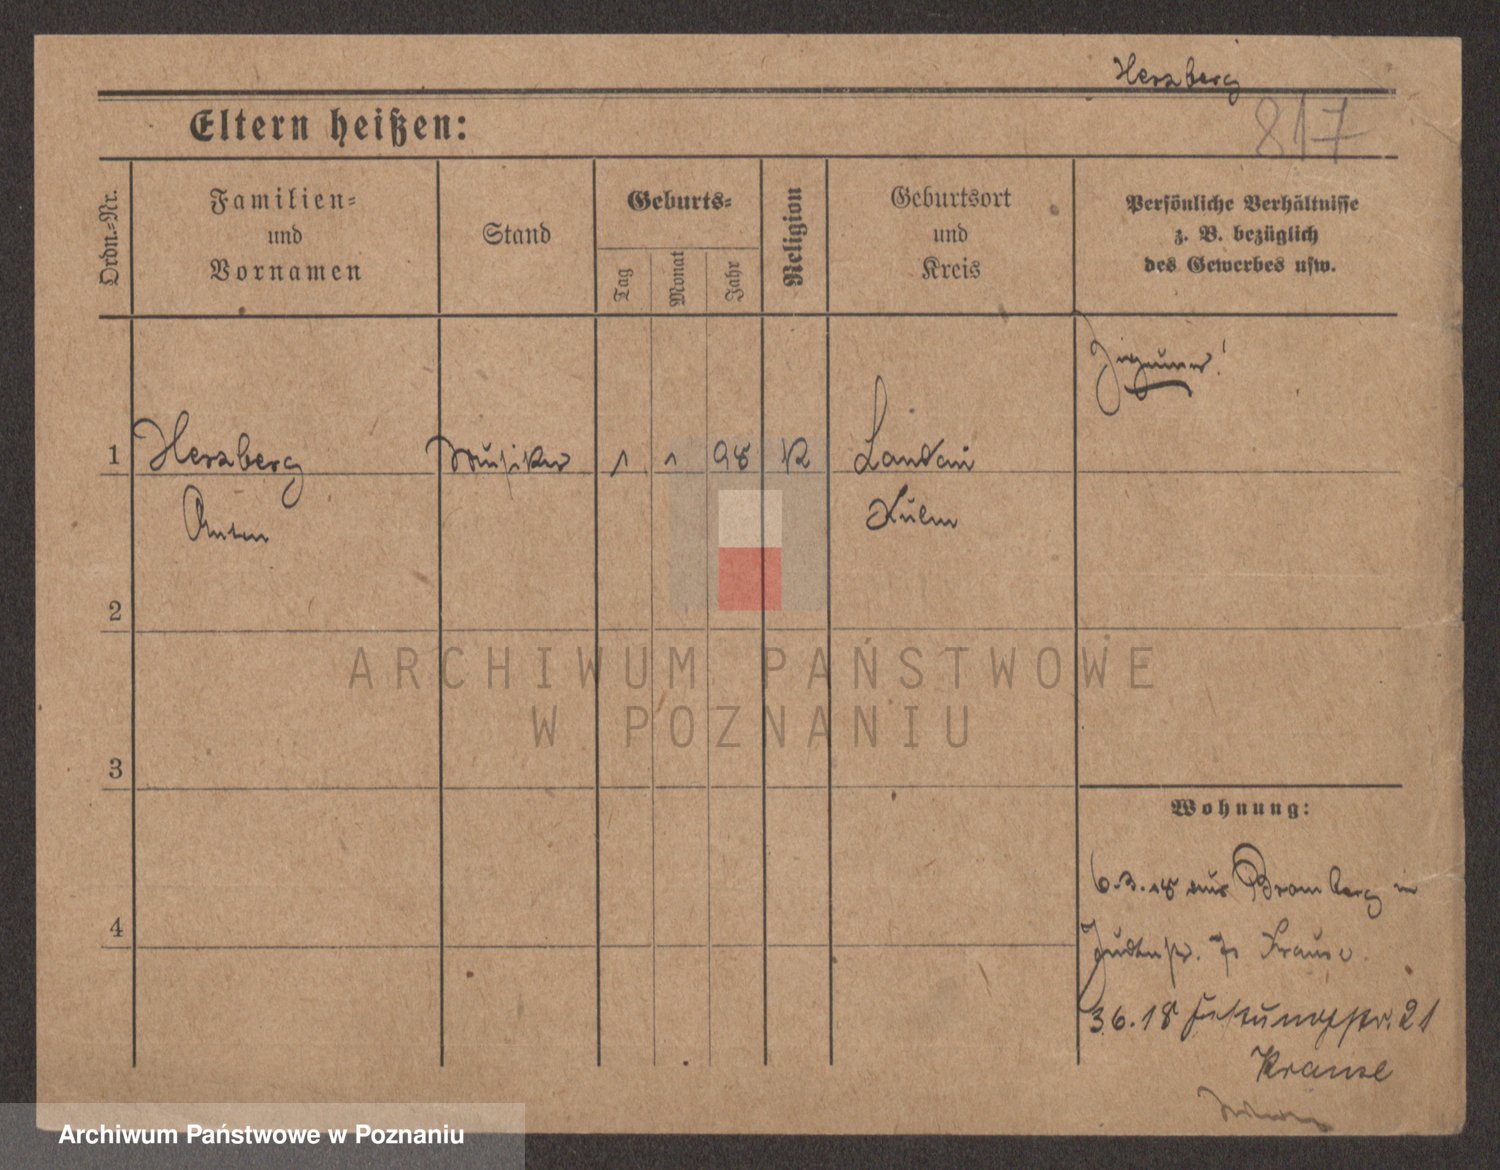 Herzberg
817
Eltern heißen:
Ordn.-Nr.
Familien-
und
Vornamen
Stand
Geburts-
Tag
Monat
Jahr
Religion
Geburtsort
und
Kreis
Persönliche Verhältnisse
z. B. bezüglich
des Gewerbes usw.
Zigeuner!
1 Herzberg Musiker 1 1 98 K
Anton Kulm
2
3
Wohnung:
6.3.18 aus Bromberg in
Judenstr. Krause
4
3 6.18 Festungsstr. 21
Krause
ARCHIWUM PAŃSTWOWE
W POZNANIU
Archiwum Państwowe w Poznaniu